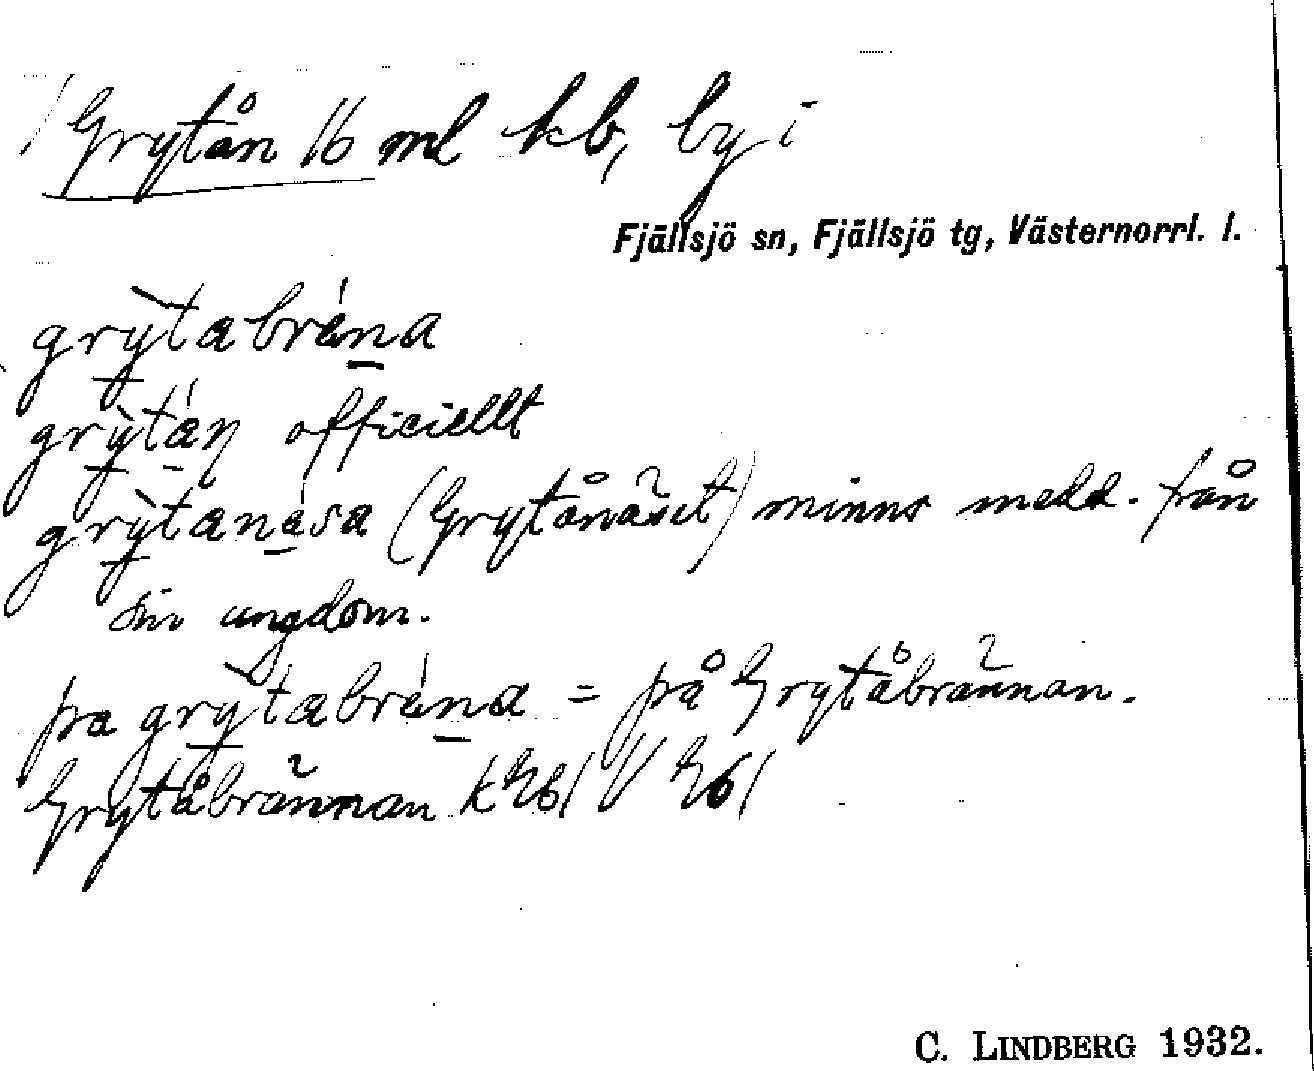 Grytån 16 ml kb, by i
Fjällsjö sn, Fjällsjö tg, Västernorrl. l.
grỳtabrána
grỳtán officiellt
grỳtanása (Grytånäset) minns medd. från
sin ungdom.
pa grỳtabrána = på Grytåbrännan.
Grytåbrännan
C. LINDBERG 1932.